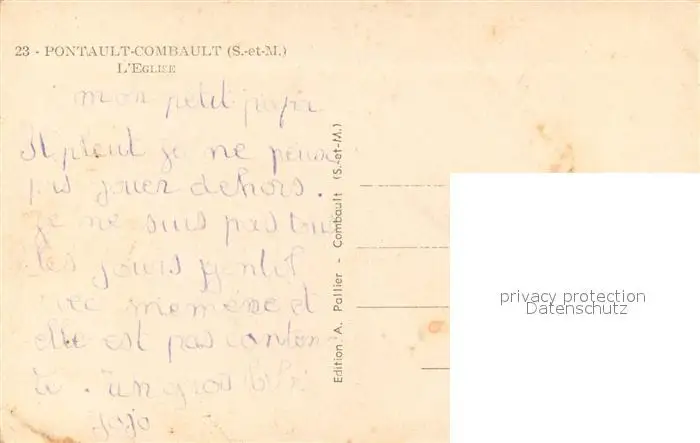 23 - PONTAULT-COMBAULT (S.-et-M.)
L'EGLISE
mon petit papa
Il pleut je ne peux
pas jouer dehors.
je ne suis pas tous
les jours gentil
avec memème et
elle est pas conten-
te. un gros bibi
jojo
Edition A. Pallier - Combault (S.-et-M.)
privacy protection
Datenschutz